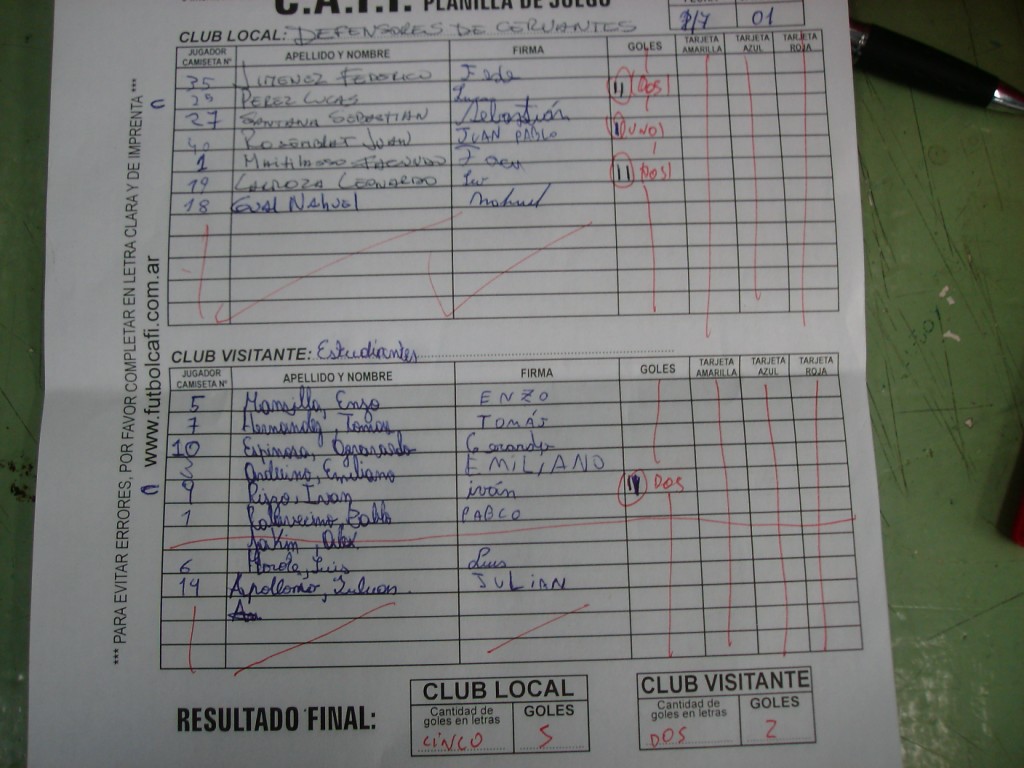 C.A.F.I. PLANILLA DE JUEGO
1/7 01
CLUB LOCAL: DEFENSORES DE CERVANTES
JUGADOR CAMISETA Nº APELLIDO Y NOMBRE FIRMA GOLES TARJETA AMARILLA TARJETA AZUL TARJETA ROJA
35 JIMENEZ FEDERICO Fede
29 PEREZ LUCAS II DOS
27 SANTANA SEBASTIAN Sebastián
40 JUAN JUAN PABLO I UNO
1 FACUNDO
19 LEONARDO II DOS
18 GUAL Nahuel Nahuel
CLUB VISITANTE: Estudiantes
JUGADOR CAMISETA Nº APELLIDO Y NOMBRE FIRMA GOLES TARJETA AMARILLA TARJETA AZUL TARJETA ROJA
5 Mansilla, Enzo ENZO
7 Hernandez, Tomas TOMÁS
10 Espinosa, Gerardo
Emiliano EMILIANO
9 Rizzo, Ivan iván II DOS
1 Pallavecino, Pablo PABLO
Alex
6 Luis Luis
14 Julian JULIAN
RESULTADO FINAL:
CLUB LOCAL
Cantidad de goles en letras GOLES
CINCO 5
CLUB VISITANTE
Cantidad de goles en letras GOLES
DOS 2
*** PARA EVITAR ERRORES, POR FAVOR COMPLETAR EN LETRA CLARA Y DE IMPRENTA ***
www.futbolcafi.com.ar